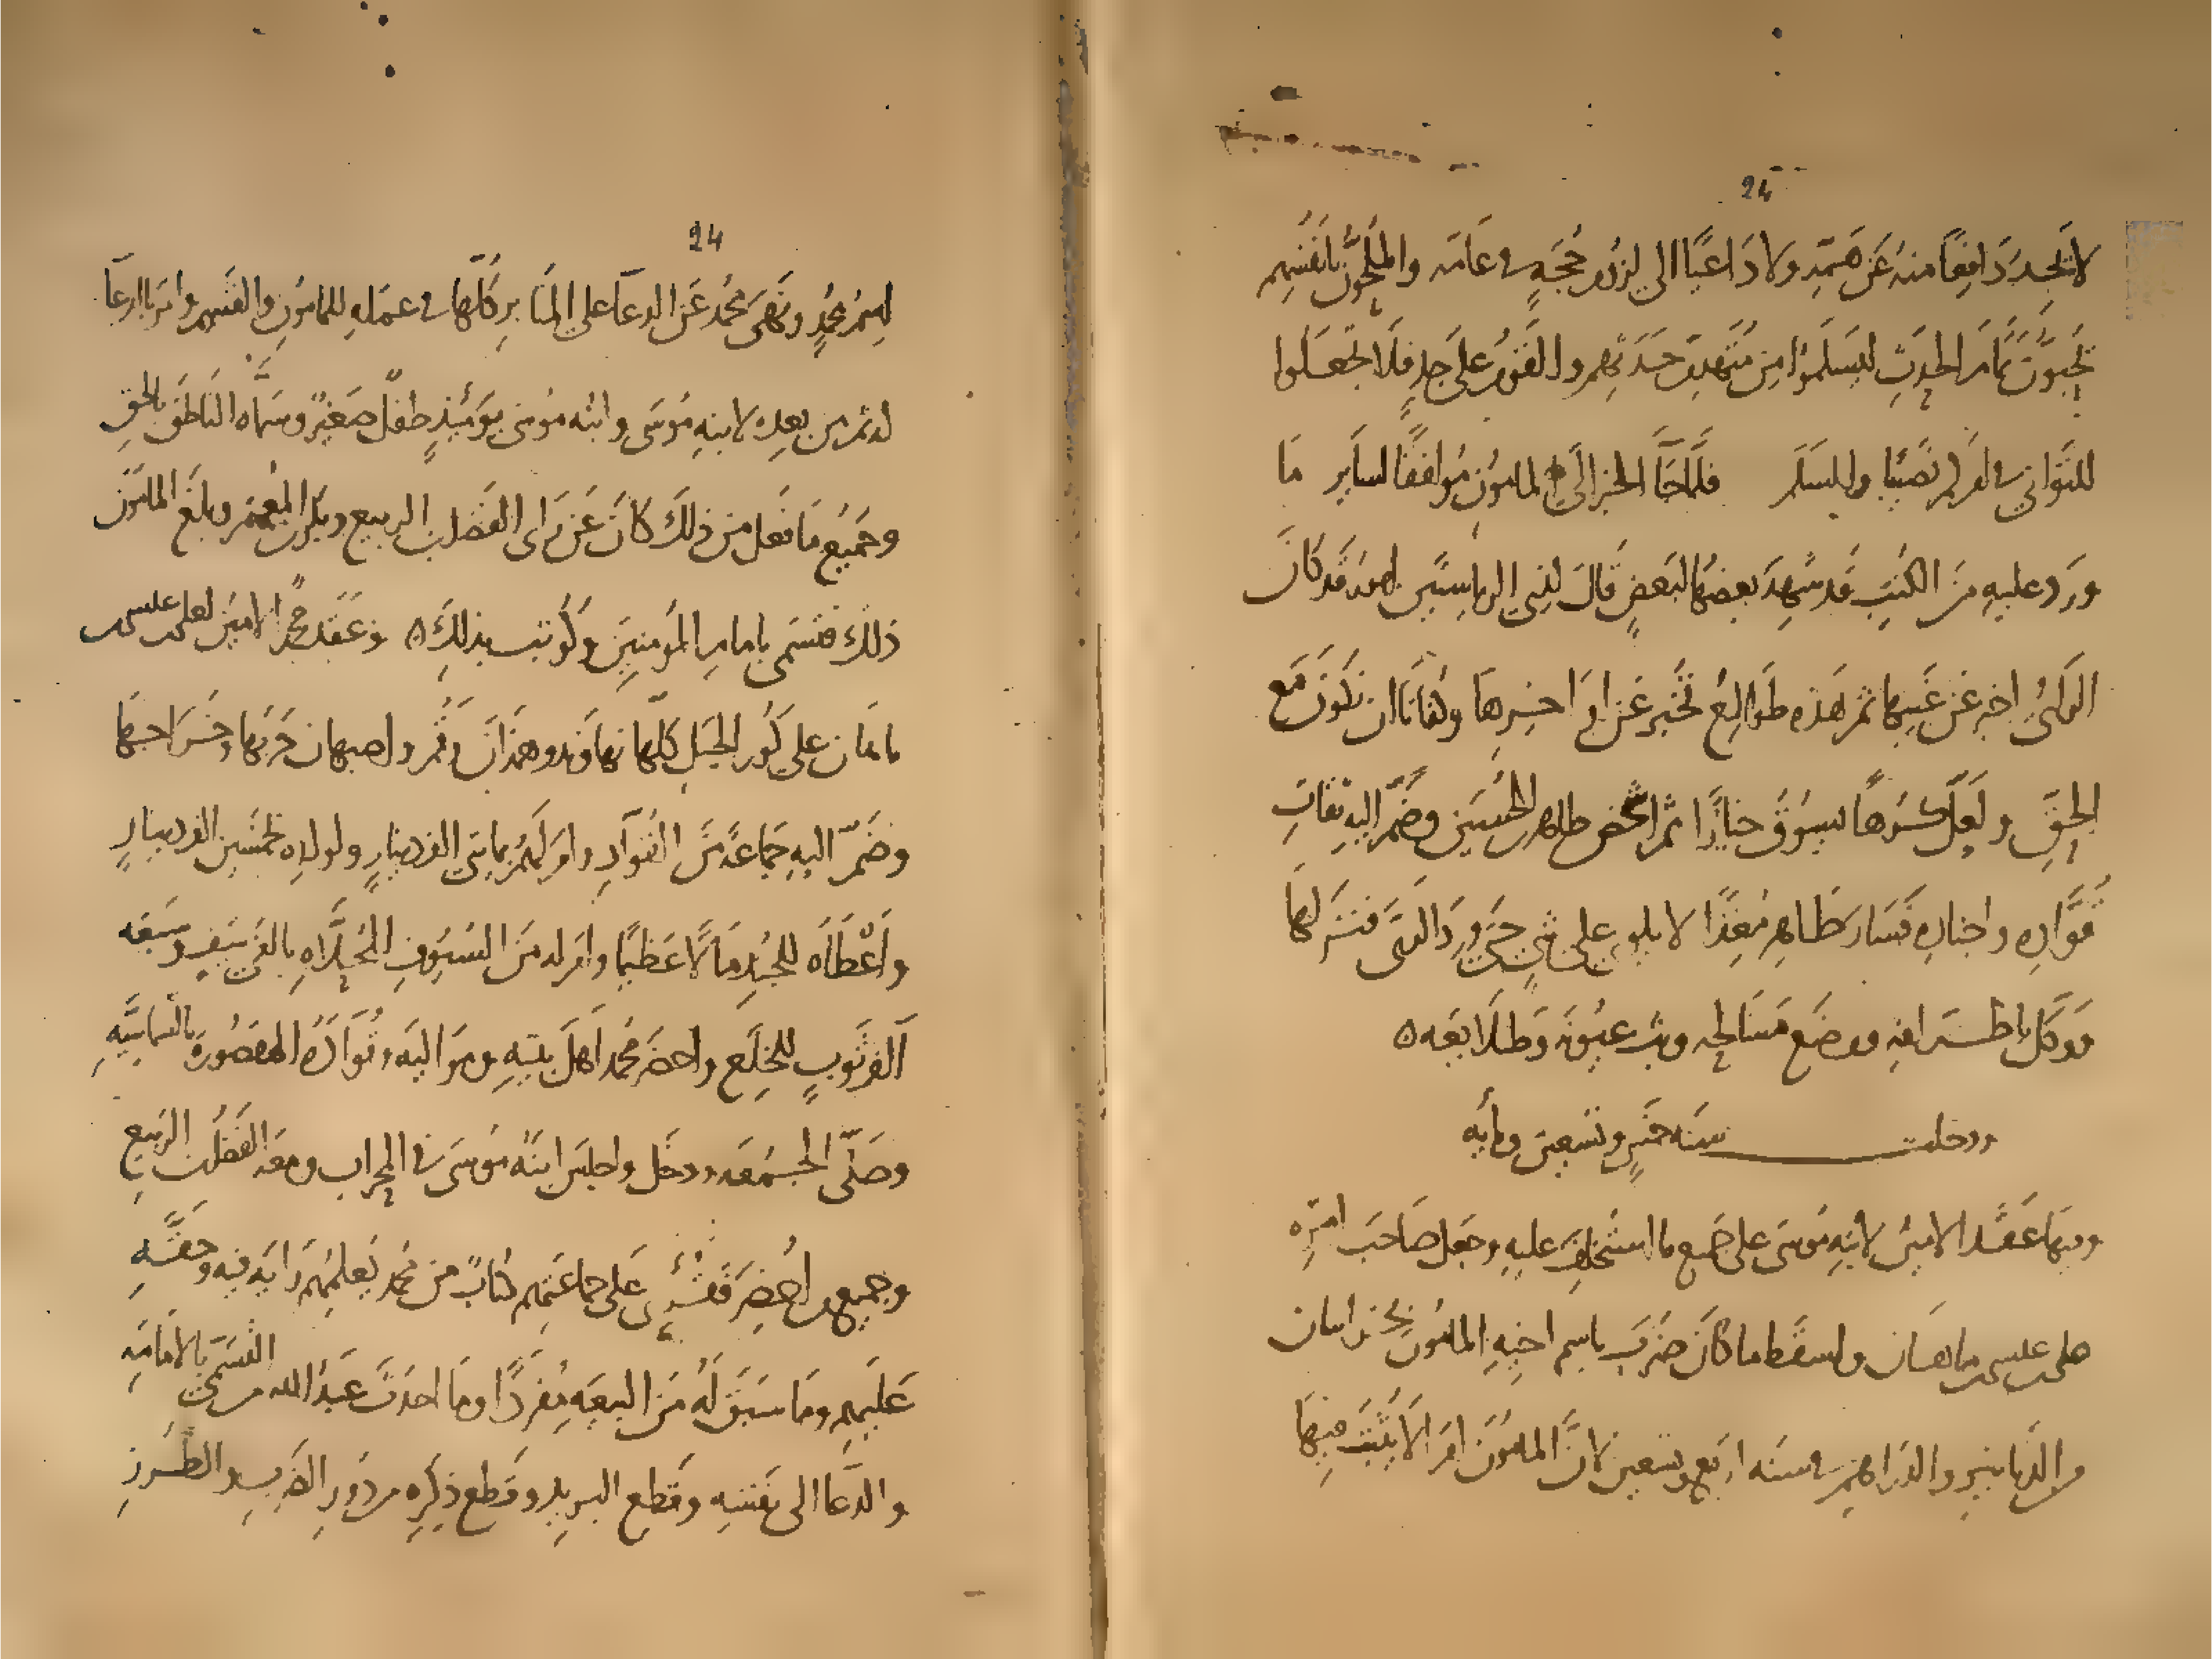 24
لا تجد دَافعًا منهُ عَن همّهِ ولا دَاعيًا الى لزوم حُجّهٍ فى عَامّه والمُلحّون بانفُسِهم
تحبّون تمامَ الحدثِ ليسلَموا مِن حدثهم والقومُ على جدٍ فلا تجعلوا
للتوانى فى امركم نصيبًا والسلم فلمّا جَآ الخبر الى المامون مُوافقًا لساير مَا
ورَد عليهِ مِنَ الكتُبِ قد شهِدَ بعضها لبعضٍ قالَ لذى الرياستين امورٌ قد كانَ
الراىُ اخبر عَن غيبها ثم هَذه طوَالِعُ تخبر عَن اوَاخِرهَا وكفانَا ان نكونَ مَع
الحقّ ولعلّ كرهًا يسوقُ خيرًا ثم اشخص طاهر بن الحُسَين وضمّ اليهِ ثقاتِ
قوّاده واجنادِه فسَارَ طَاهِر مُغِذًّا لا يلوى على شىٍ حتى ورَدَ الرىّ فنزلهَا
ووكّل باطرافه ووضَع مسَالحه وبث عيُونَه وَطلايعَه ه
ودخلت سنَه خمسٍ وتسعين ومايَه
وفيها عَقَد الامين لابنِه مُوسَى على جَميع ما استخلف عليهِ وجَعل صَاحبَ امرِه
على بن عيسى بن ماهان واسقط ما كانَ ضُربَ باسم اخيهِ المامُون بخراسان
من الدنانير والدراهم فى سنه اربع وتسعين لانّ المامُون امرَ الاَّ يُثبت فيها
24
اسمُ محمدٍ ونهى محمد عَن الدعَآ على المنابر كلّها فى عمَلهِ للمامُون والقسم وامَر بالدعَآ
له ثم من بعده لابنهِ مُوسَى وابنُه مُوسى يومَئذٍ طفلٌ صَغيرٌ وسمّاه الناطقَ بالحقِ
وجميعُ مَا فعل من ذلكَ كانَ عَن رَاى الفضل بن الربيع وبكر بن المعتمر وبلغ المامُون
ذلك فتسمى بامام المؤمنين وكُوتبَ بذلكَ ه وعَقد محمدٌ الامين لعلى بن عيسى بن
ماهَان على كُوَر الجبَل كلّها نهاوَند وهمذانَ وقُم واصبهان حَربها وخَراجها
وضَمّ اليهِ جماعَةً منَ القوّادِ وامَر لهم بمايتى الف دينارٍ ولولدِه بخمسين الف دينارٍ
واعطَاه للجُندِ مَالًا عَظيمًا وامرَ له منَ السيُوفِ المُحلّاه بالفى سَيفٍ وسبعَه
آلاف ثَوبٍ للخِلَع واحضَر محمد اهلَ بيتِهِ ومواليَه وقوّادَهُ المقصُورَه بالشماسيّهِ
وصَلّى الجمعَه ودخَل واجلسَ ابنَهُ مُوسَى فى المحراب ومعَه الفضل بن الربيع
وجميع من اُحضِرَ فقُرىَ عَلى جماعَتهم كتابٌ من محمد يُعلمُهم رَايَه فيهم وحقّهِ
عَليهِم ومَا سَبقَ لَهُ منَ البيعَهِ مُفرَدًا ومَا احدَثَ عبدُ الله من التسمّى بالامامَه
والدعَآ الى نفسِه وقطع البريد وقطع ذِكره من دُورِ الضربِ والطُرزِ